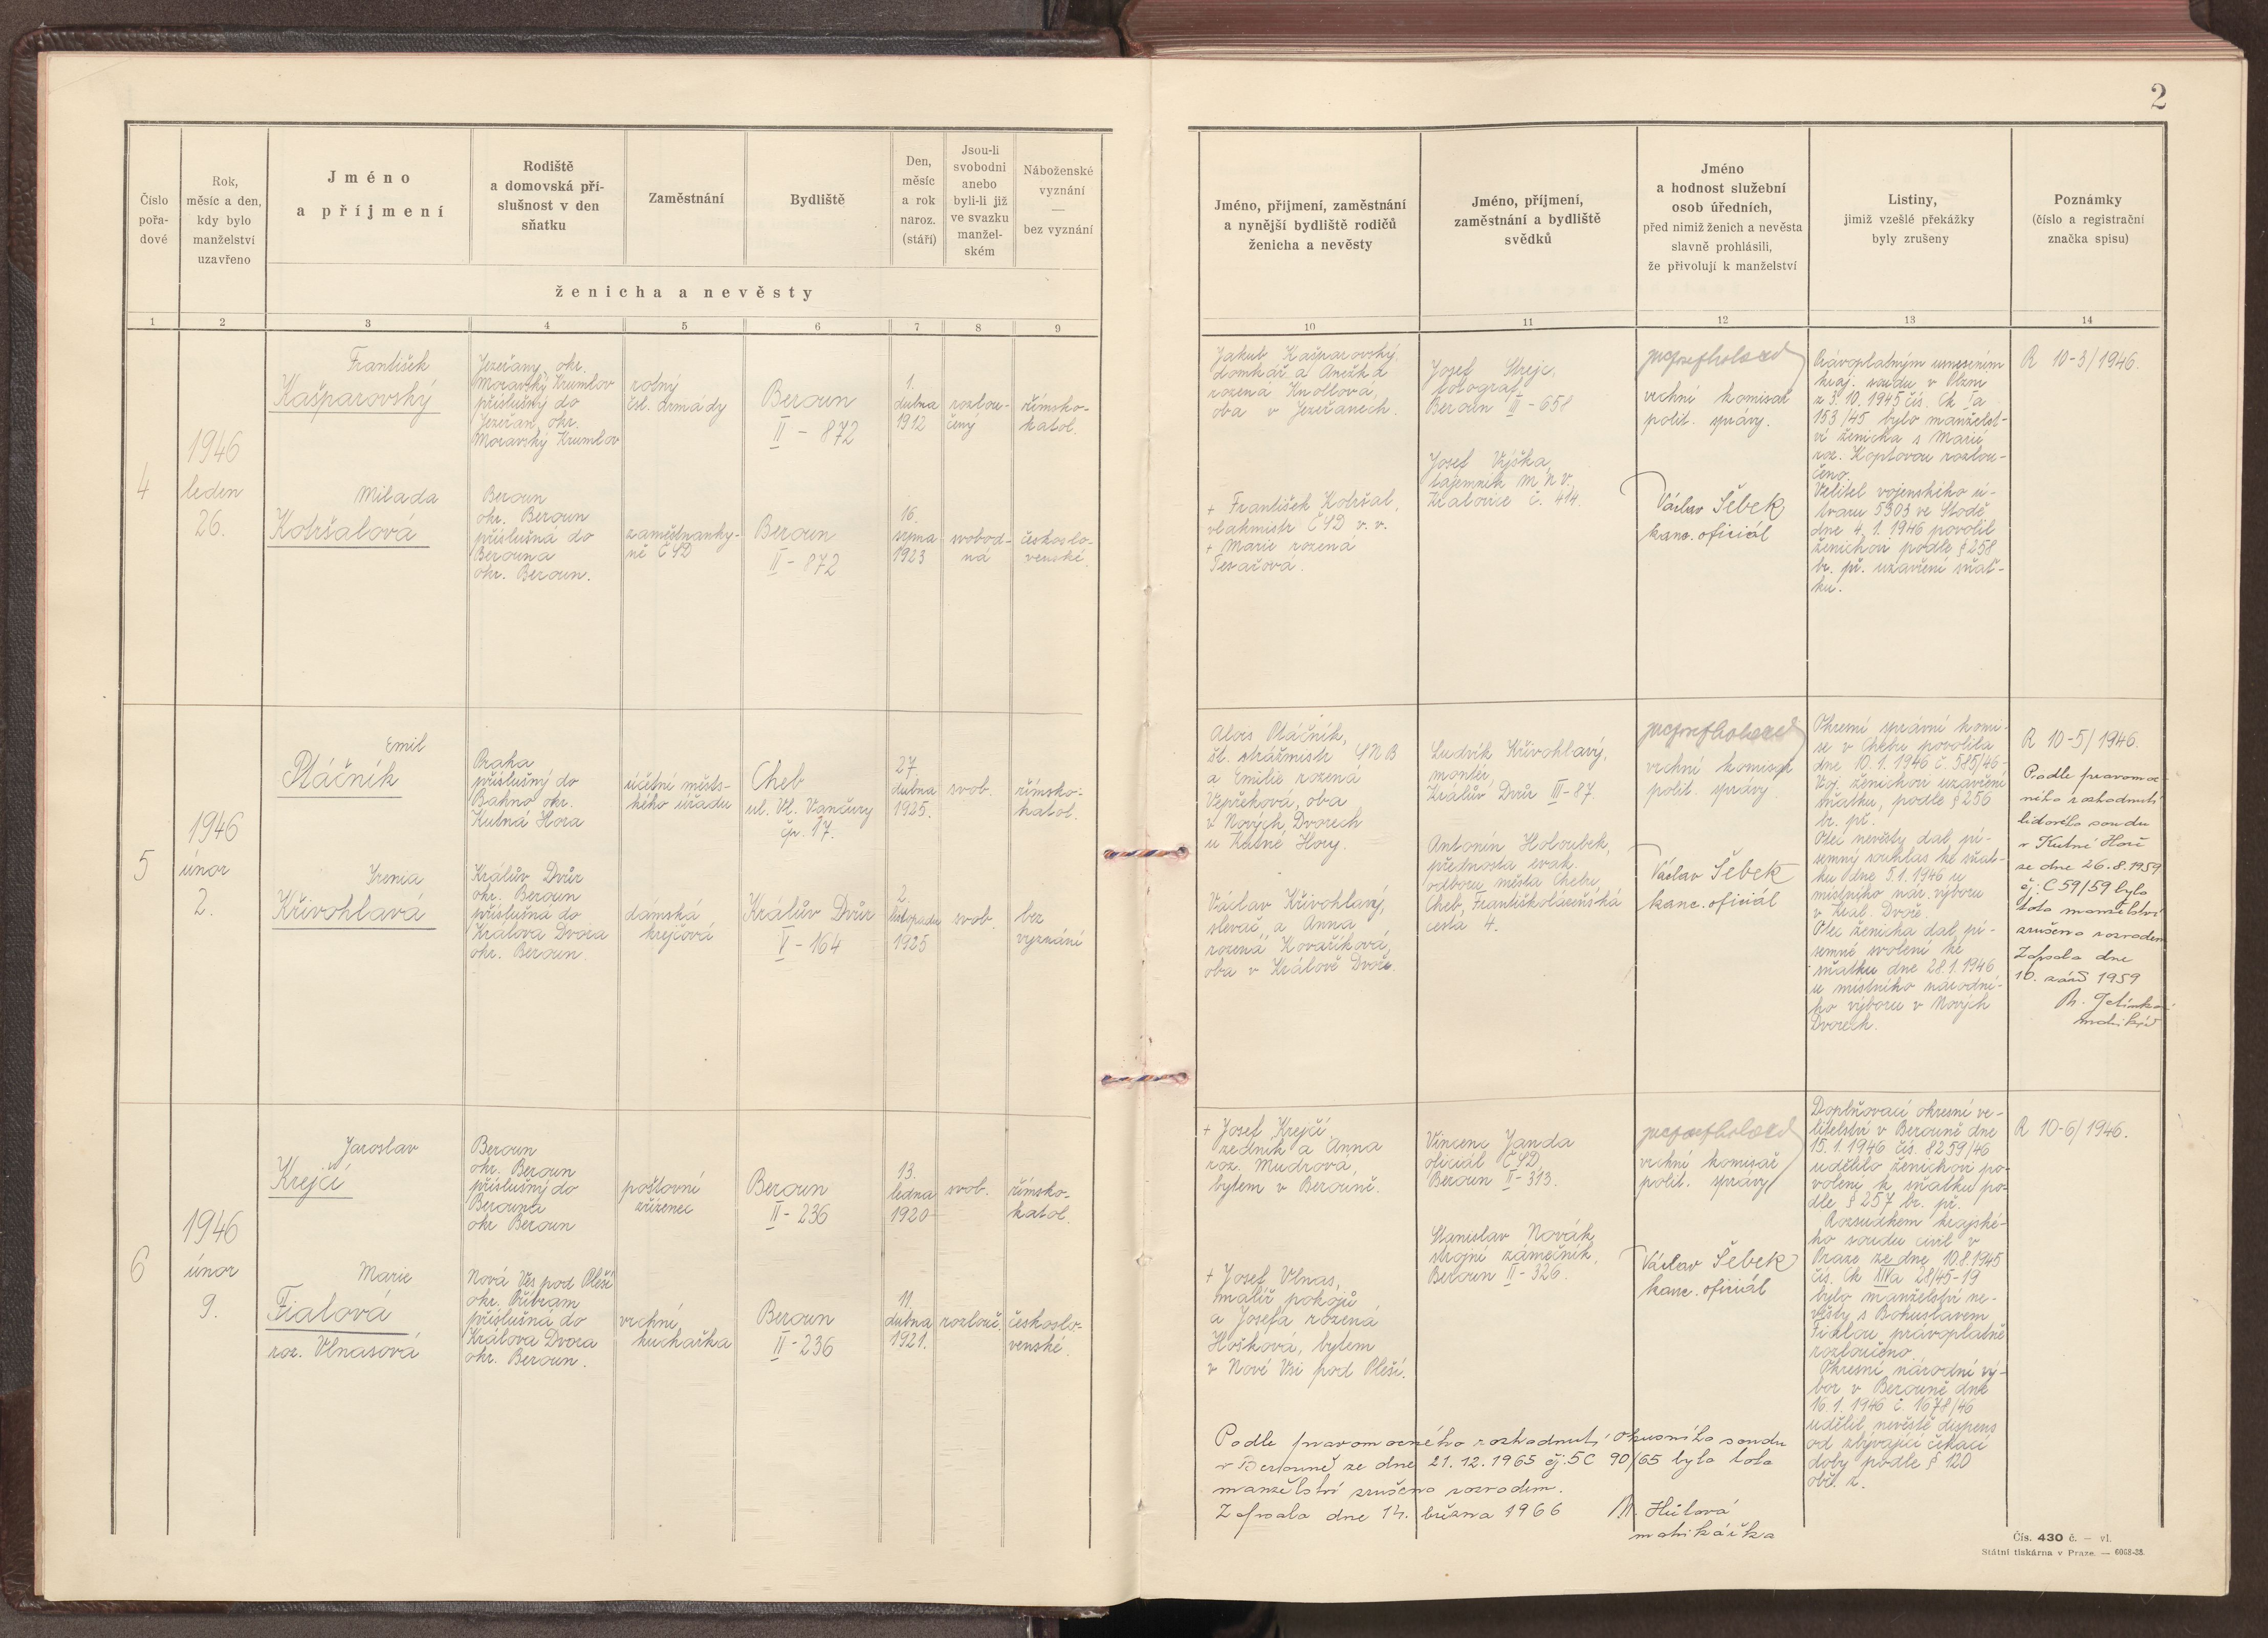 2
Číslo
pořa-
dové
Rok,
měsíc a den,
kdy bylo
manželství
uzavřeno
Jméno
a příjmení
Rodiště
a domovská pří-
slušnost v den
sňatku
Zaměstnání
Bydliště
Den,
měsíc
a rok
naroz.
(stáří)
Jsou-li
svobodni
anebo
byli-li již
ve svazku
manžel-
ském
Náboženské
vyznání
—
bez vyznání
ženicha a nevěsty
Jméno, příjmení, zaměstnání
a nynější bydliště rodičů
ženicha a nevěsty
Jméno, příjmení,
zaměstnání a bydliště
svědků
Jméno
a hodnost služební
osob úředních,
před nimiž ženich a nevěsta
slavně prohlásili,
že přivolují k manželství
Listiny,
jimiž vzešlé překážky
byly zrušeny
Poznámky
(číslo a registrační
značka spisu)
1 2 3 4 5 6 7 8 9 10 11 12 13 14
4
1946
leden
26.
František
Kašparovský
Jezeřany, okr.
Moravský Krumlov
příslušný do
Jezeřan, okr.
Moravský Krumlov
rotný
čsl. armády
Beroun
II - 872
1.
dubna
1912
rozlou-
čený
římsko-
katol.
Milada
Kotršalová
Beroun
okr. Beroun
příslušná do
Berouna
okr. Beroun.
zaměstnanky-
ně ČSD
Beroun
II - 872
16.
srpna
1923
svobod-
ná
českoslo-
venské.
Jakub Kašparovský,
domkář a Anežka
rozená Knollová,
oba v Jezeřanech.
+ František Kotršal,
vlakmistr ČSD v. v.
+ Marie rozená
Tesařová.
Josef Strejc,
fotograf
Beroun II - 658
Josef Vyška,
tajemník M N V.,
Kralovice č. 414
vrchní komisař
polit. správy.
Václav Šebek
kanc. oficiál
Právoplatným usnesením
kraj. soudu v Plzni
z 3. 10. 1945 čís. Ck Ia
153/45 bylo manželst-
ví ženicha s Marií
roz. Koptovou rozlou-
čeno.
Velitel vojenského ú-
tvaru 5303 ve Stodě
dne 4. 1. 1946 povolil
ženichovi podle § 258
br. př. uzavření sňat-
ku.
R 10-3/1946.
5
1946
únor
2.
Emil
Ptáčník
Praha
příslušný do
Bahno okr.
Kutná Hora
účetní měst-
ského úřadu
Cheb
ul. Vl. Vančury
čp. 17.
27.
dubna
1925.
svob.
římsko-
katol.
Irenia
Křivohlavá
Králův Dvůr
okr. Beroun
příslušná do
Králova Dvora
okr. Beroun.
dámská
krejčová
Králův Dvůr
V - 164
2.
listopadu
1925
svob.
bez
vyznání
Alois Ptáčník,
št. strážmistr SNB
a Emilie rozená
Vepřeková, oba
v Nových Dvorech
u Kutné Hory.
Václav Křivohlavý,
slevač a Anna
rozená Kovaříková,
oba v Králově Dvoře.
Ludvík Křivohlavý,
montér,
Králův Dvůr III-87.
Antonín Holoubek,
přednosta evak.
odboru města Chebu
Cheb, Františkolázeňská
cesta 4.
vrchní komisař
polit. správy
Václav Šebek
kanc. oficiál
Okresní správní komi-
se v Chebu povolila
dne 10. 1. 1946 č. 585/46-
Voj. ženichovi uzavření
sňatku, podle § 256
br. př.
Otec nevěsty dal pí-
semný souhlas ke sňat-
ku dne 5. 1. 1946 u
místního nár. výboru
v Král. Dvoře.
Otec ženicha dal pí-
semné svolení ke
sňatku dne 28. 1. 1946
u místního národní-
ho výboru v Nových
Dvorech.
R 10-5/1946.
Podle pravomoc-
ného rozhodnutí
lidového soudu
v Kutné Hoře
ze dne 26.8.1959
čj. C 59/59 bylo
toto manželství
zrušeno rozvodem
Zapsala dne
10. září 1959
matrikář
6
1946
únor
9.
Jaroslav
Krejčí
Beroun
okr. Beroun
příslušný do
Berouna
okr Beroun
poštovní
zřízenec
Beroun
II - 236
13.
ledna
1920
svob.
římsko-
katol.
Marie
Fialová
roz. Vlnasová
Nová Ves pod Pleší
okr. Příbram
příslušná do
Králova Dvora
okr. Beroun.
vrchní
kuchařka
Beroun
II - 236
11.
dubna
1921.
rozlouč.
českoslo-
venské.
+ Josef Krejčí
zedník a Anna
roz. Mudrová,
bytem v Berouně.
+ Josef Vlnas,
malíř pokojů
a Josefa rozená
Hošková, bytem
v Nové Vsi pod Pleší.
Vincenc Janda
oficiál ČSD,
Beroun II - 313.
Stanislav Novák,
strojní zámečník,
Beroun II - 326.
vrchní komisař
polit. správy
Václav Šebek
kanc. oficiál
Doplňovací okresní ve-
litelství v Berouně dne
15. 1. 1946 čís. 8259/46
udělilo ženichovi po-
volení k sňatku po-
dle § 257 br. př.
Rozsudkem krajské-
ho soudu civil. v
Praze ze dne 10.8.1945
čís. Ck XIVa 28/45-19
bylo manželství ne-
věsty s Bohuslavem
Fialou právoplatně
rozloučeno.
Okresní národní vý-
bor v Berouně dne
16. 1. 1946 č. 1678/46
udělil nevěstě dispens
od zbývající čekací
doby podle § 120
obč. z.
R 10-6/1946.
Podle pravomocného rozhodnutí okresního soudu
v Berouně ze dne 21.12.1965 čj. 5C 90/65 bylo toto
manželství zrušeno rozvodem.
Zapsala dne 14. března 1966 M. Hůlová
matrikářka
Čís. 430 č. — vl.
Státní tiskárna v Praze. — 6068-38.